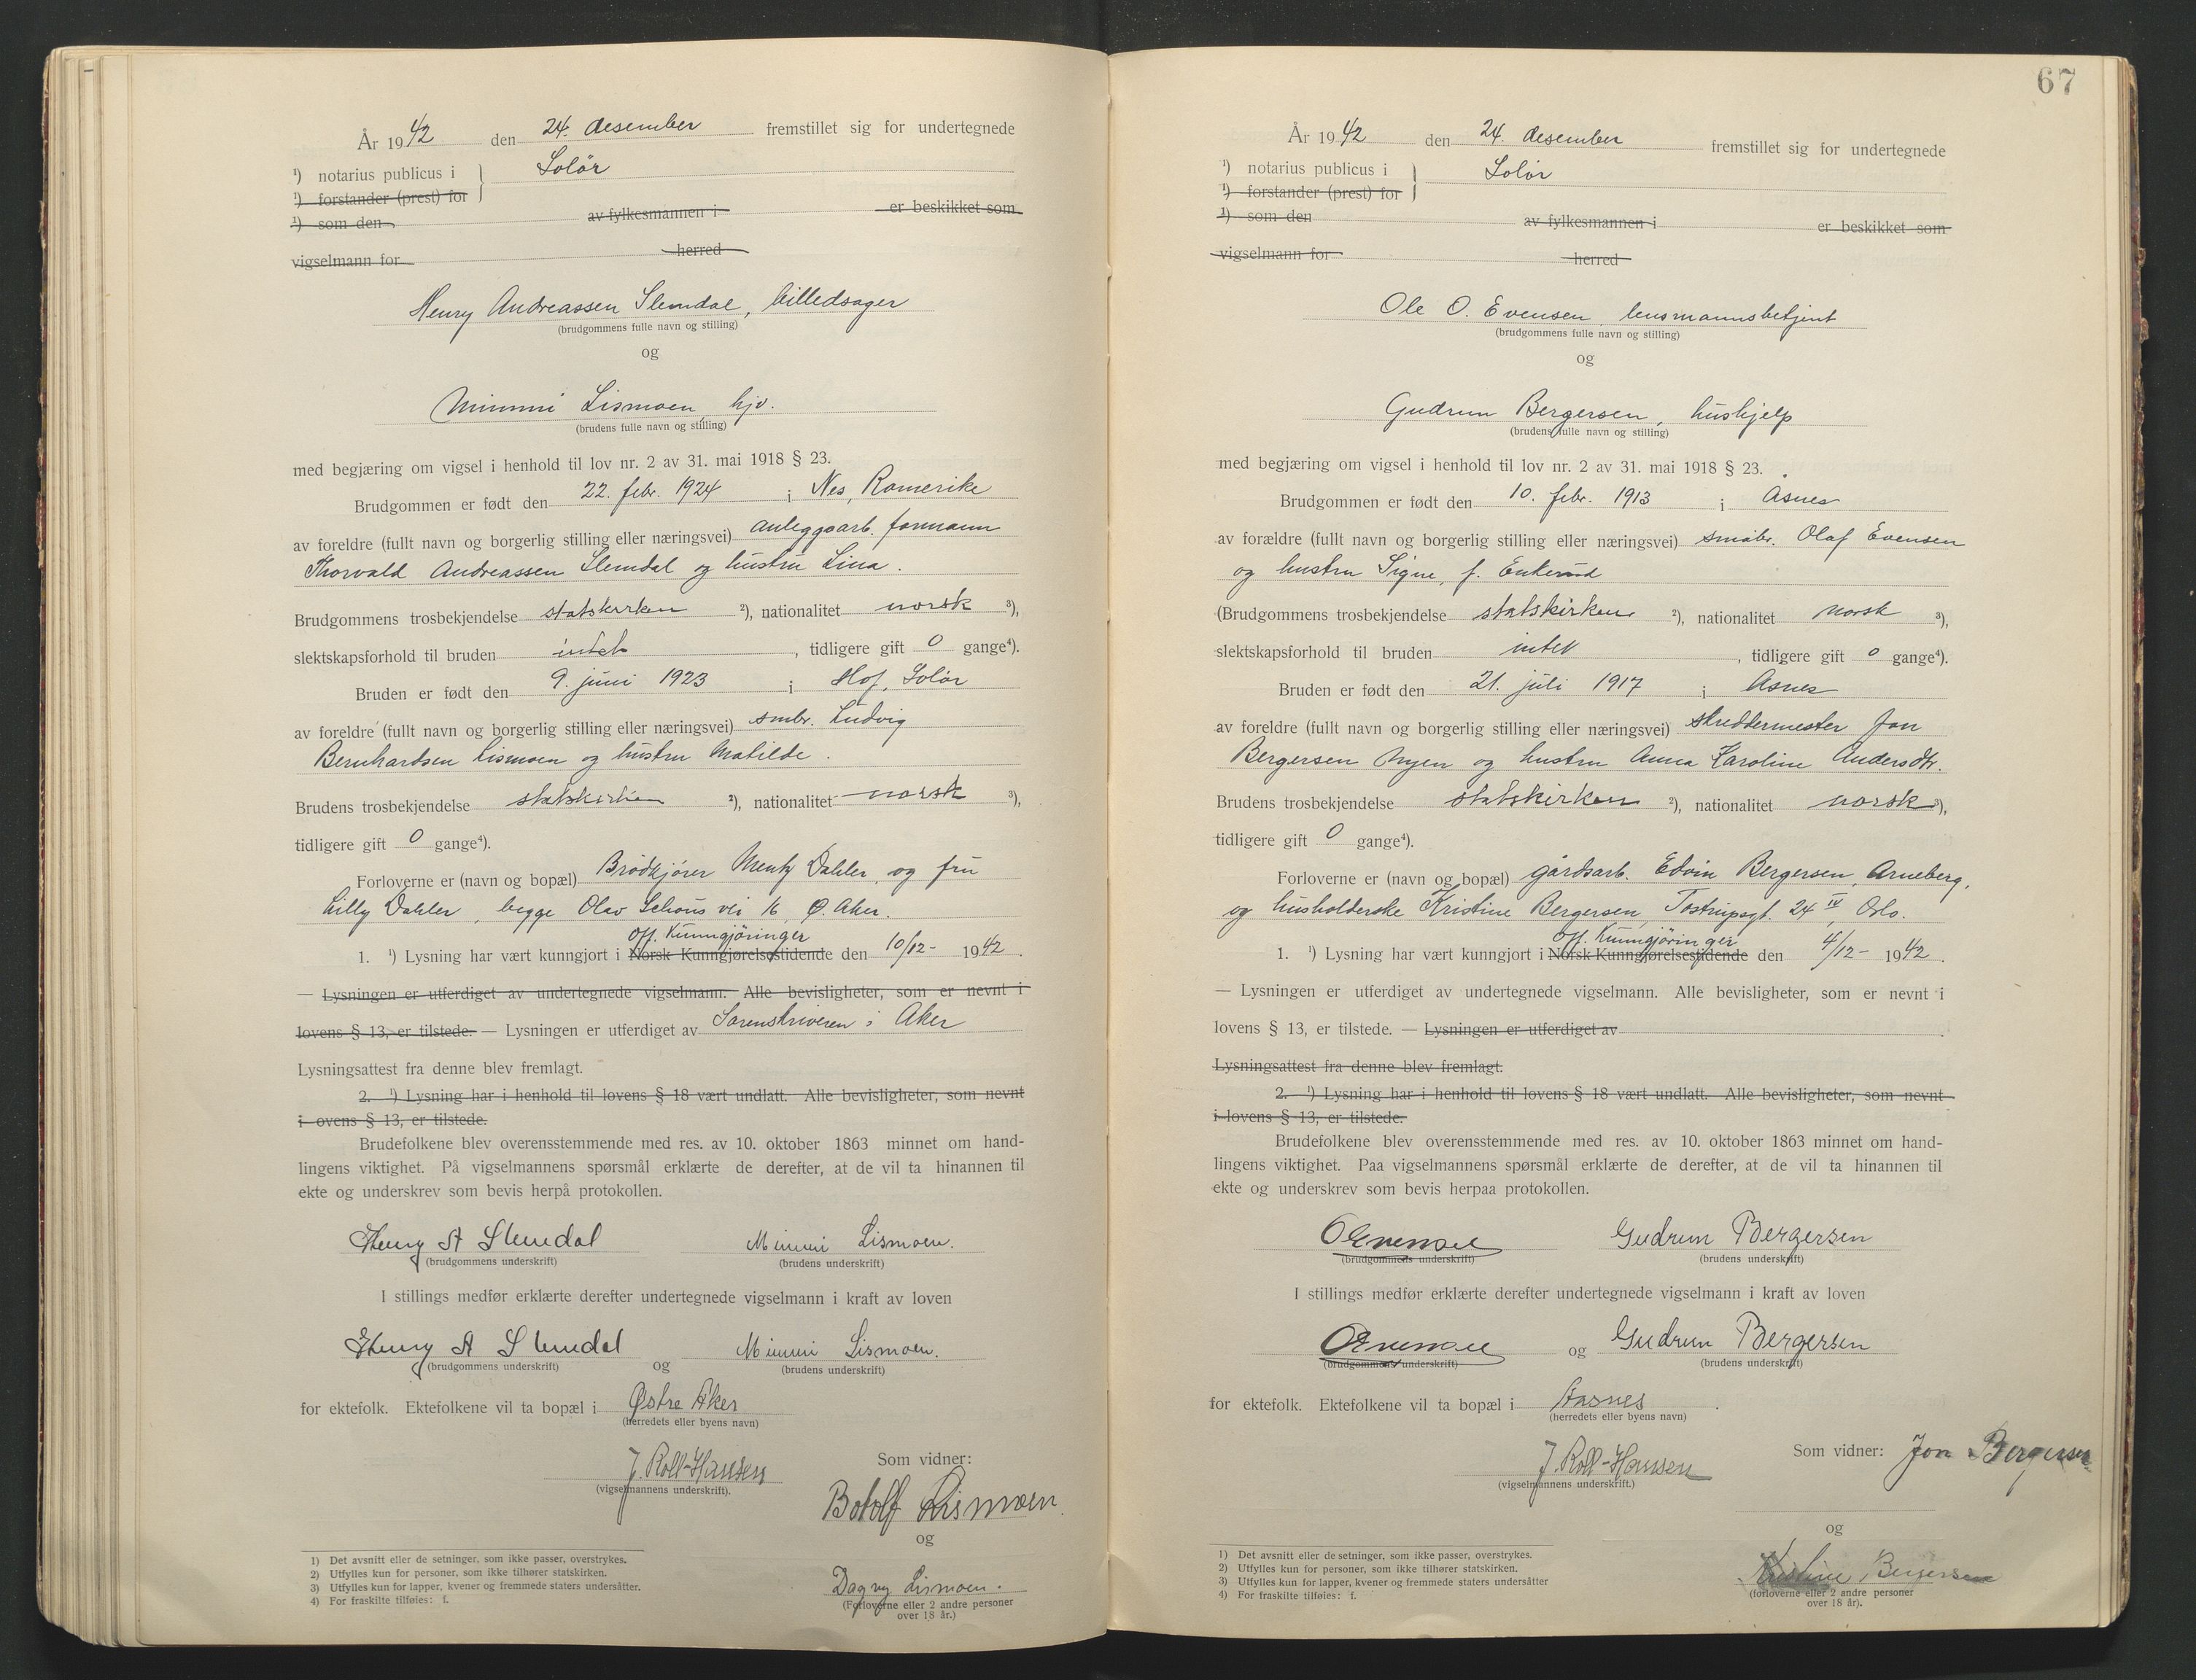 År 1942 den 24. desember fremstillet sig for undertegnede
¹) notarius publicus i } Solör
¹) forstander (prest) for
¹) som den av fylkesmannen i er beskikket som
vigselmann for herred
Henry Andreassen Slemdal, billedsager
(brudgommens fulle navn og stilling)
og
Mimmi Lismoen, hjv.
(brudens fulle navn og stilling)
med begjæring om vigsel i henhold til lov nr. 2 av 31. mai 1918 § 23.
Brudgommen er født den 22. febr. 1924 i Nes, Romerike
av foreldre (fullt navn og borgerlig stilling eller næringsvei) anleggsarb. formann
Thorvald Andreassen Slemdal og hustru Lina.
Brudgommens trosbekjendelse statskirken ²), nationalitet norsk ³),
slektskapsforhold til bruden intet, tidligere gift 0 gange⁴).
Bruden er født den 9. juni 1923 i Hof, Solör
av foreldre (fullt navn og borgerlig stilling eller næringsvei) smbr. Ludvig
Bernhardsen Lismoen og hustru Matilde.
Brudens trosbekjendelse statskirken ²), nationalitet norsk ³),
tidligere gift 0 gange⁴).
Forloverne er (navn og bopæl) Brödkjörer Mentz Dahler, og fru
Lilly Dahler, begge Olav Schous vei 16, Ø. Aker.
off. Kunngjöringer
1. ¹) Lysning har vært kunngjort i Norsk Kunngjørelsestidende den 10/12- 1942.
— Lysningen er utferdiget av undertegnede vigselmann. Alle bevisligheter, som er nevnt i
lovens § 13, er tilstede. — Lysningen er utferdiget av Sorenskriveren i Aker
Lysningsattest fra denne blev fremlagt.
2. ¹) Lysning har i henhold til lovens § 18 vært undlatt. Alle bevisligheter, som nevnt
i ovens § 13, er tilstede.
Brudefolkene blev overensstemmende med res. av 10. oktober 1863 minnet om hand-
lingens viktighet. På vigselmannens spørsmål erklærte de derefter, at de vil ta hinannen til
ekte og underskrev som bevis herpå protokollen.
Henry A Slemdal Mimmi Lismoen.
(brudgommens underskrift) (brudens underskrift)
I stillings medfør erklærte derefter undertegnede vigselmann i kraft av loven
Henry A Slemdal og Mimmi Lismoen.
(brudgommens underskrift) (brudens underskrift)
for ektefolk. Ektefolkene vil ta bopæl i Østre Aker
(herredets eller byens navn)
Som vidner:
J. Roll-Hansen
(vigselmannens underskrift).
Botolf Lismoen.
og
Dagny Lismoen.
(Forloverne eller 2 andre personer
over 18 år.)
1) Det avsnitt eller de setninger, som ikke passer, overstrykes.
2) Utfylles kun for personer, som ikke tilhører statskirken.
3) Utfylles kun for lapper, kvener og fremmede staters undersåtter.
4) For fraskilte tilføies: f.
67
År 1942 den 24. desember fremstillet sig for undertegnede
¹) notarius publicus i } Solör
¹) forstander (prest) for
¹) som den av fylkesmannen i er beskikket som
vigselmann for herred
Ole O. Evensen, lensmannsbetjent
(brudgommens fulle navn og stilling)
og
Gudrun Bergersen, hushjelp
(brudens fulle navn og stilling)
med begjæring om vigsel i henhold til lov nr. 2 av 31. mai 1918 § 23.
Brudgommen er født den 10. febr. 1913 i Åsnes
av forældre (fullt navn og borgerlig stilling eller næringsvei) småbr. Olaf Evensen
og hustru Signe, f. Enkerud
(Brudgommens trosbekjendelse statskirken ²), nationalitet norsk ³),
slektskapsforhold til bruden intet, tidligere gift 0 gange⁴).
Bruden er født den 21. juli 1917 i Åsnes
av foreldre (fullt navn og borgerlig stilling eller næringsvei) skreddermester Jon
Bergersen Nyen og hustru Anna Karoline Andersdtr.
Brudens trosbekjendelse statskirken ²), nationalitet norsk ³),
tidligere gift 0 gange⁴).
Forloverne er (navn og bopæl) gårdsarb. Edvin Bergersen, Arneberg,
og husholderske Kristine Bergersen, Tostrupsgt. 24 IV, Oslo.
off. Kunngjöringer
1. ¹) Lysning har vært kunngjort i Norsk Kunngjørelsestidende den 4/12- 1942.
— Lysningen er utferdiget av undertegnede vigselmann. Alle bevisligheter, som er nevnt i
lovens § 13, er tilstede. — Lysningen er utferdiget av
Lysningsattest fra denne blev fremlagt.
2. ¹) Lysning har i henhold til lovens § 18 vært undlatt. Alle bevisligheter, som nevnt
i lovens § 13, er tilstede.
Brudefolkene blev overensstemmende med res. av 10. oktober 1863 minnet om hand-
lingens viktighet. Paa vigselmannens spørsmål erklærte de derefter, at de vil ta hinannen til
ekte og underskrev som bevis herpaa protokollen.
OEvensen Gudrun Bergersen
(brudgommens underskrift) (brudens underskrift)
I stillings medfør erklærte derefter undertegnede vigselmann i kraft av loven
OEvensen og Gudrun Bergersen
(brudgommens underskrift) (brudens underskrift)
for ektefolk. Ektefolkene vil ta bopæl i Aasnes.
(herredets eller byens navn)
Som vidner: Jon Bergersen
J. Roll-Hansen
(vigselmannens underskrift.)
og
Kristine Bergersen
(forloverne eller 2 andre personer
over 18 år).
1) Det avsnitt eller de setninger, som ikke passer, overstrykes.
2) Utfylles kun for personer, som ikke tilhører statskirken.
3) Utfylles kun for lapper, kvener og fremmede staters undersåtter
4) For fraskilte tilføies: f.